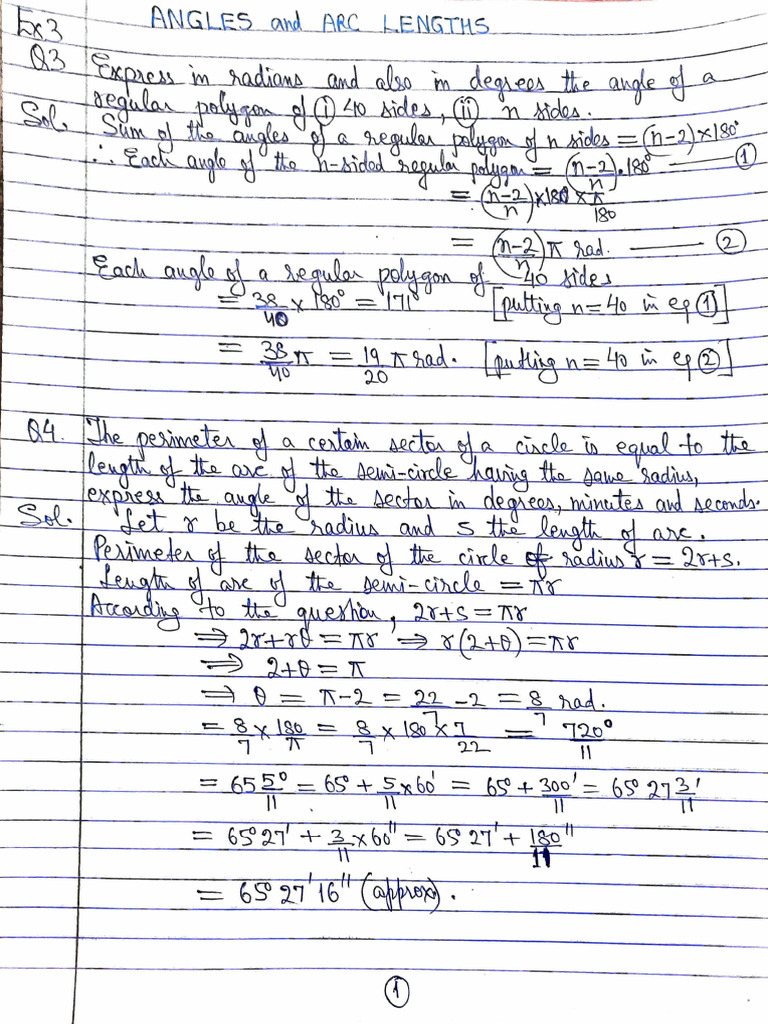 Ex3 ANGLES and ARC LENGTHS
Q3 Express in radians and also in degrees the angle of a
regular polygon of (i) 40 sides, (ii) n sides.
Sol. Sum of the angles of a regular polygon of n sides = (n-2)×180°
∴ Each angle of the n-sided regular polygon = ((n-2)/n)·180° —— ①
= ((n-2)/n)×180×π/180
= ((n-2)/n)π rad. —— ②
Each angle of a regular polygon of 40 sides
= 38/40 × 180° = 171° [putting n=40 in eq ①]
= 38/40 π = 19/20 π rad. [putting n=40 in eq ②]
Q4. The perimeter of a certain sector of a circle is equal to the
length of the arc of the semi-circle having the same radius,
express the angle of the sector in degrees, minutes and seconds.
Sol. Let r be the radius and s the length of arc.
Perimeter of the sector of the circle of radius r = 2r+s.
Length of arc of the semi-circle = πr
According to the question, 2r+s=πr
⇒ 2r+rθ = πr ⇒ r(2+θ)=πr
⇒ 2+θ = π
⇒ θ = π-2 = 22/7 -2 = 8/7 rad.
= 8/7 × 180/π = 8/7 × 180 × 7/22 = 720°/11
= 65 5/11° = 65° + 5/11 × 60' = 65° + 300'/11 = 65° 27 3/11'
= 65° 27' + 3/11 × 60" = 65° 27' + 180"/11
= 65° 27' 16" (approx).
①